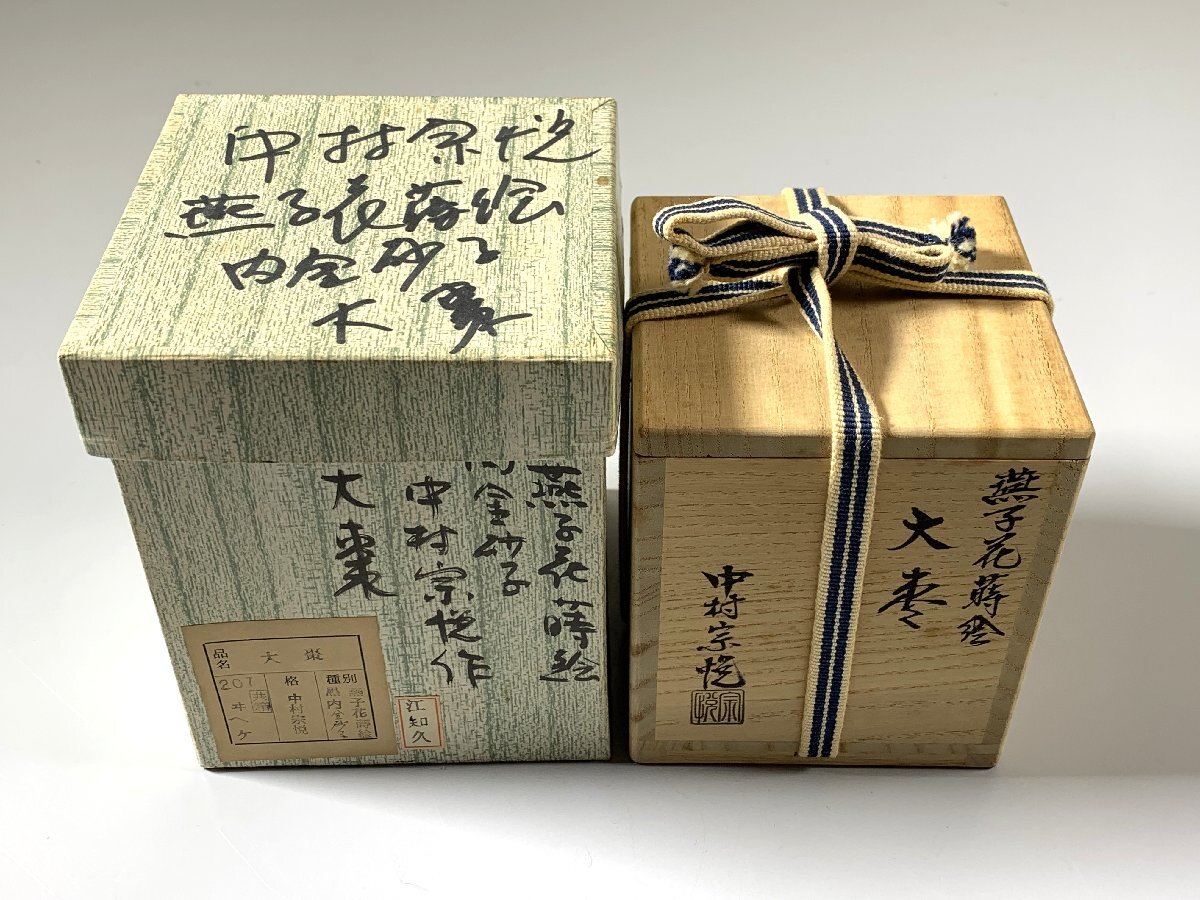 中村宗悦
燕子花蒔絵
内金砂子
大棗
燕子花蒔絵
内金砂子
中村宗悦作
大棗
品名 大棗
種別 燕子花蒔絵
内金砂子
格 中村宗悦
207
共箱
ヰヘケ
江知久
燕子花蒔絵
大棗
中村宗悦
宗悦